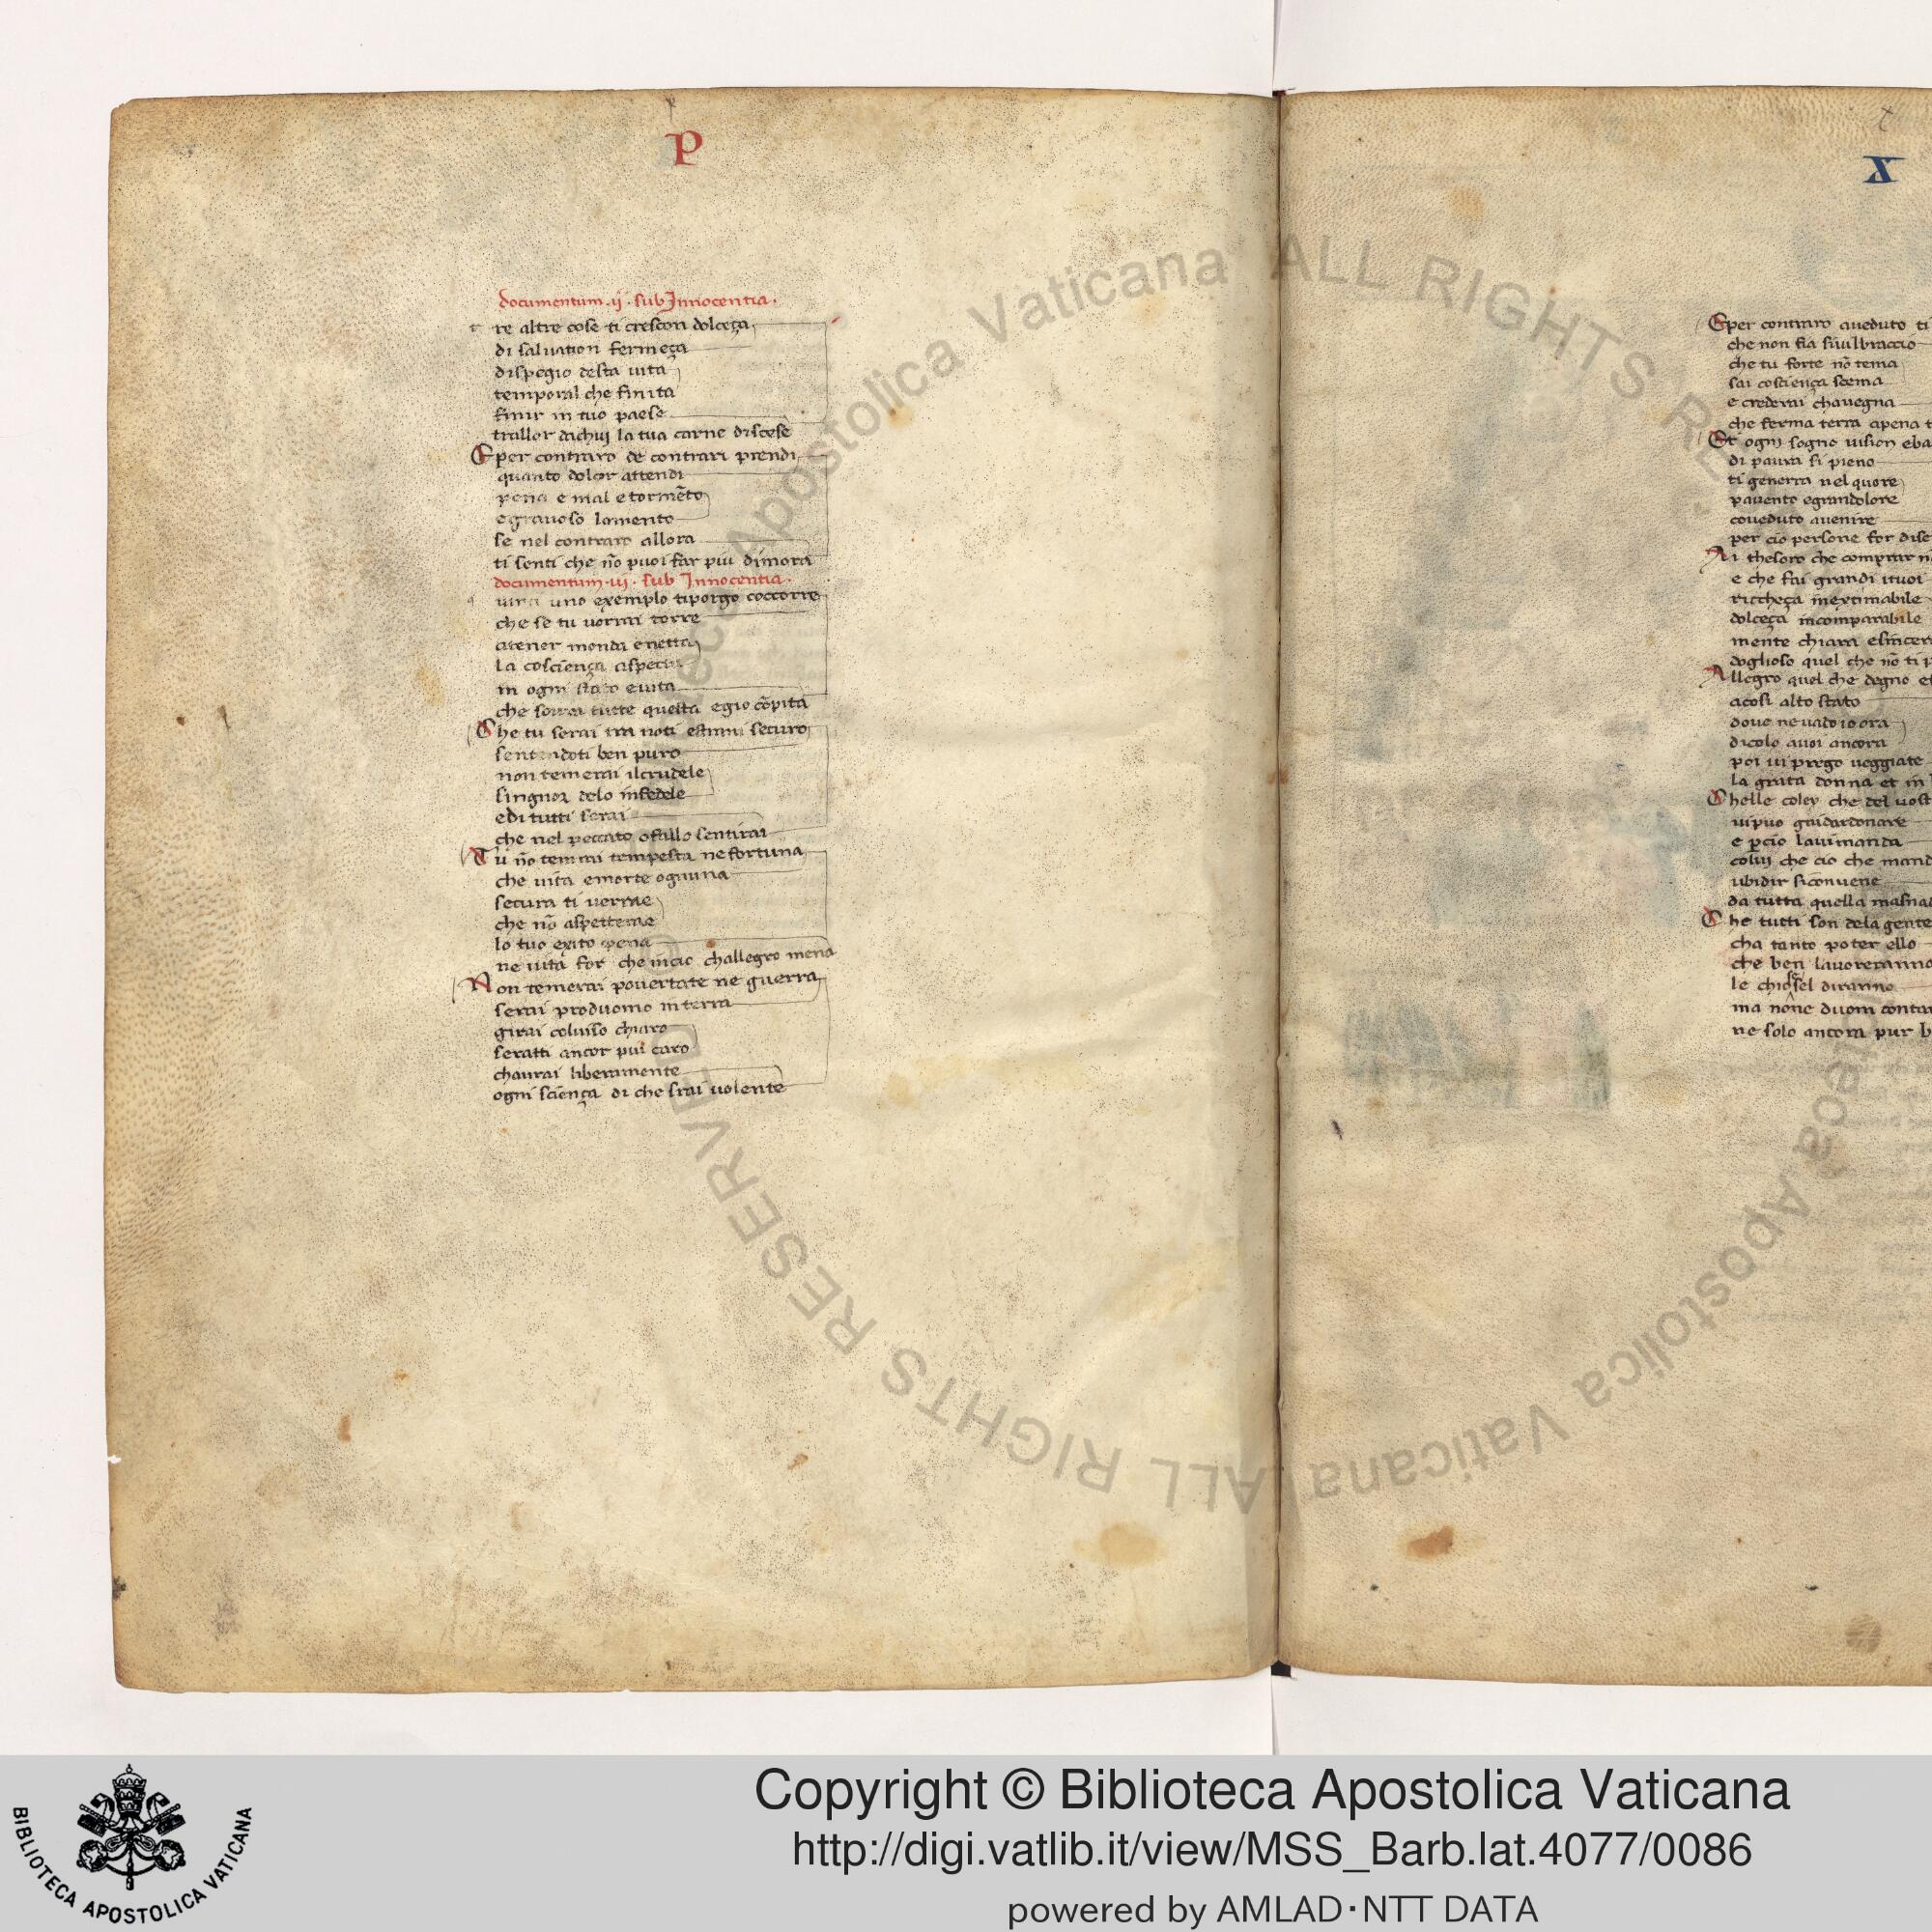 P
documentum .ij. sub Innocentia.
re altre cose ti crescon dolceça
di saluation fermeça
dispegio desta uita
temporal che finita
finir in tuo paese
trallor dachuj la tua carne discese
E per contraro de contrari prendi
quanto dolor attendi
pena e mal e tormẽto
e grauoso lamento
se nel contraro allora
ti senti che nõ puoi far piu dimora
documentum .iij. sub Innocentia.
uno exemplo ti porgo coccorre
che se tu uorrai torre
atener monda e netta
la cosciença aspecta
in ogni stato e uita
che tutte questa egio cõpita
Che tu serai tra noti esanni securo
sentendoti ben puro
non temerai il crudele
lingnoꝝ delo infedele
edi tutti serai
che nel peccato ofallo sentirai
Tu nõ temrai tempesta ne fortuna
che uita emorte ognuna
secura ti uerrae
che nõ aspetterae
lo tuo exito pena
ne uita for che challegro mena
Non temerai pouertate ne guerra
serai produomo interra
girai coluiso chiaro
seratti ancor piu caro
chaurai liberamente
ogni sciença di che srai uolente
X
E per contraro aueduto ti
che non fia
che tu forte nõ tema
sai cosciença scema
e crederai chauegna
che ferma terra apena t
Et ogni sogno uision eba
di paura si pieno
ti generra nel quore
pauento egrandolore
coueduto auenire
per cio persone for dise
Ai thesoro che comprar n
e che fai grandi ituoi
riccheça inextimabile
dolceça incomparabile
mente chiara esincer
doglioso quel che nõ ti p
Allegro quel che degno e
acosi alto stato
doue ne uado io ora
dicolo auoi ancora
poi ui prego ueggiate
la grata donna et in
Chelle coley che del uost
uipuo guidardonare
e pcio lauimanda
colui che cio che mand
ubidir si conuene
da tutta quella masna
Che tutti son dela gente
cha tanto poter ello
che ben lauoreranno
le chiosse sel diranno
ma nõne duom contar
ne solo ancora pur b
Biblioteca Apostolica Vaticana ALL RIGHTS RESERVED
BIBLIOTECA APOSTOLICA VATICANA
Copyright © Biblioteca Apostolica Vaticana
http://digi.vatlib.it/view/MSS_Barb.lat.4077/0086
powered by AMLAD·NTT DATA